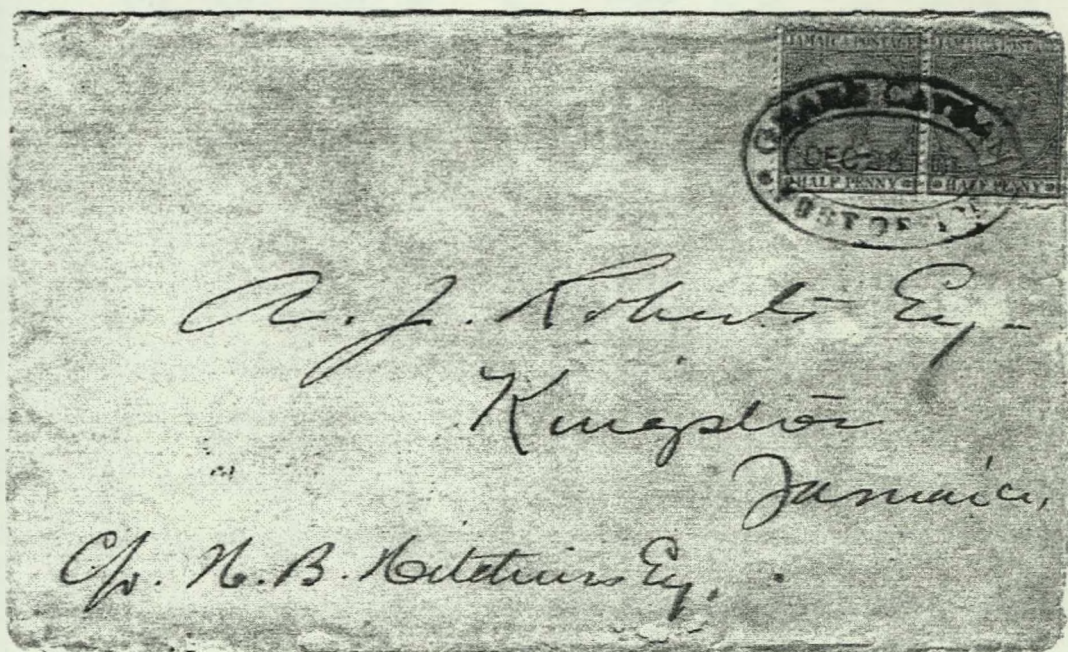 JAMAICA POSTAGE JAMAICA POSTAGE
GRAND CAYMAN
DEC 28
HALF PENNY HALF PENNY
POST OFFICE
A. J. Roberts Esq.
Kingston
Jamaica,
C/o. H. B. Esq.